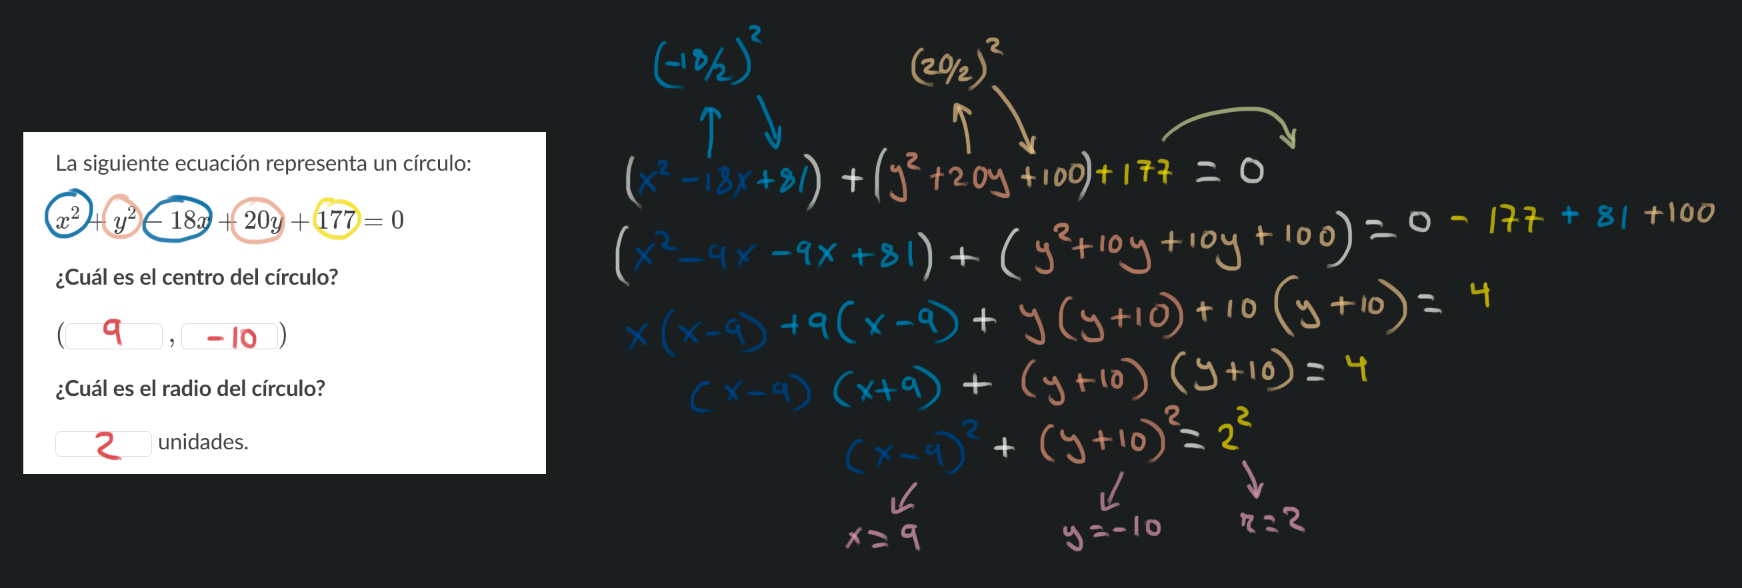 La siguiente ecuación representa un círculo:
x² + y² − 18x + 20y + 177 = 0
¿Cuál es el centro del círculo?
( 9 , -10 )
¿Cuál es el radio del círculo?
2 unidades.
(-18/2)² (20/2)²
(x² -18x +81) + (y² +20y +100) +177 = 0
(x² -9x -9x +81) + (y² +10y +10y +100) = 0 - 177 + 81 +100
x(x-9) +9(x-9) + y(y+10) +10(y+10) = 4
(x-9)(x+9) + (y+10)(y+10) = 4
(x-9)² + (y+10)² = 2²
x=9 y=-10 r=2